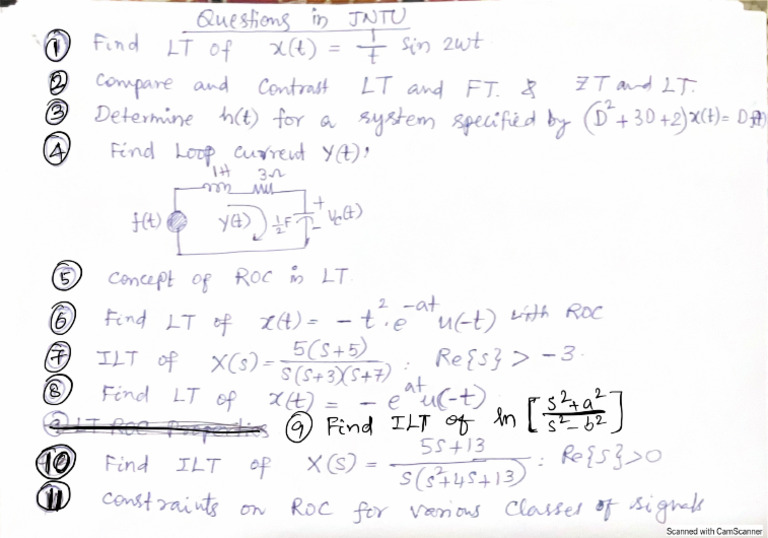 Questions in JNTU
① Find LT of x(t) = 1/t sin 2wt
② Compare and Contrast LT and FT. & ZT and LT.
③ Determine h(t) for a system specified by (D²+3D+2)x(t)= Df(t)
④ Find Loop current y(t),
1H 3Ω
f(t) y(t) 1/2 F + - Vc(t)
⑤ Concept of ROC in LT
⑥ Find LT of x(t) = - t². e^-at u(-t) with ROC
⑦ ILT of X(s) = 5(s+5) / s(s+3)(s+7) : Re{s} > -3
⑧ Find LT of x(t) = - e^at u(-t)
⑨ Find ILT of ln [s²+a² / s²-b²]
⑩ Find ILT of X(s) = 5s+13 / s(s²+4s+13) : Re{s}>0
⑪ constraints on ROC for various classes of signals
Scanned with CamScanner